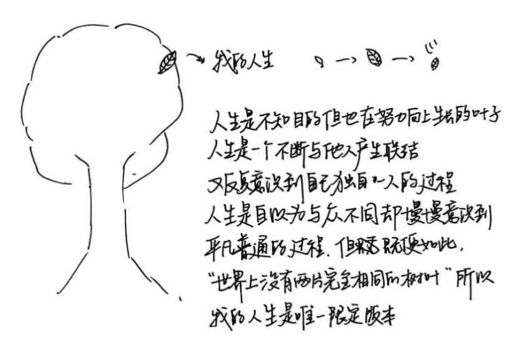 我的人生
人生是不知目的但也在努力向上生长的叶子
人生是一个不断与他人产生联结
又反复意识到自己独自一人的过程
人生是自以为与众不同却慢慢意识到
平凡普通的过程、但即便如此,
“世界上没有两片完全相同的树叶”所以
我的人生是唯一限定版本